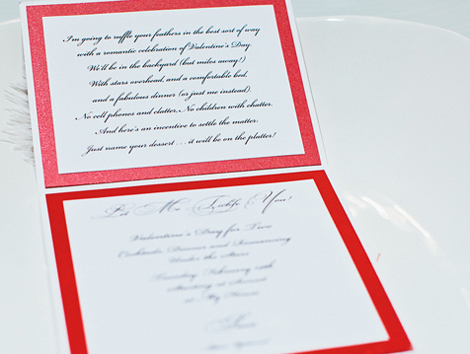 I'm going to ruffle your feathers in the best sort of way
with a romantic celebration of Valentine's Day.
We'll be in the backyard (but miles away!)
With stars overhead, and a comfortable bed,
and a fabulous dinner (or just me instead).
No cell phones and clatter, No children with chatter.
And here's an incentive to settle the matter:
Just name your dessert... it will be on the platter!
Let Me You!
Valentine's Day for Two
Cocktails, Dinner and Romancing
Under the Stars
Tuesday, February
Starting at
at My House